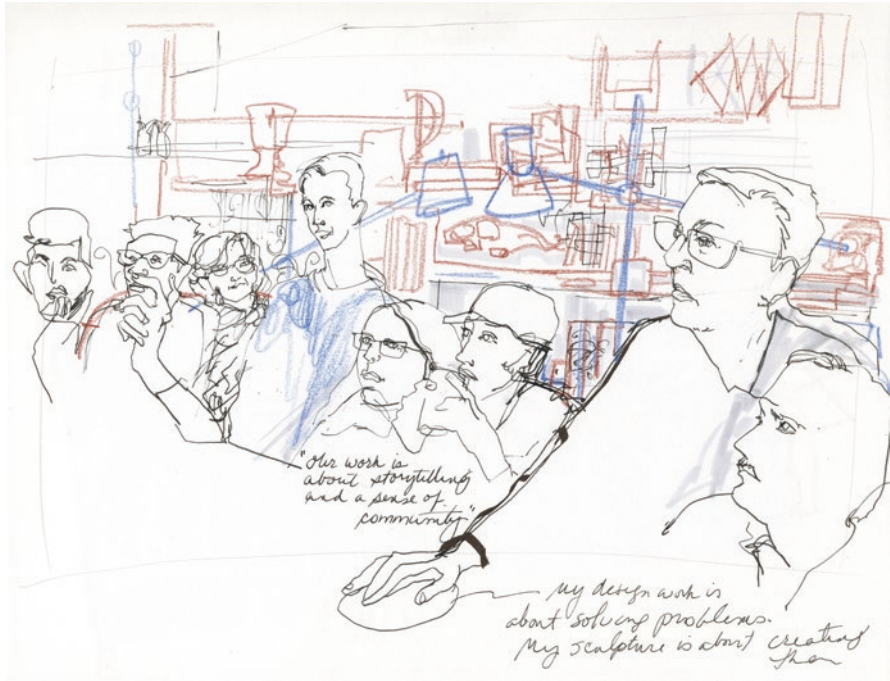 "Our work is
about storytelling
and a sense of
community"
My design work is
about solving problems.
My sculpture is about creating
them